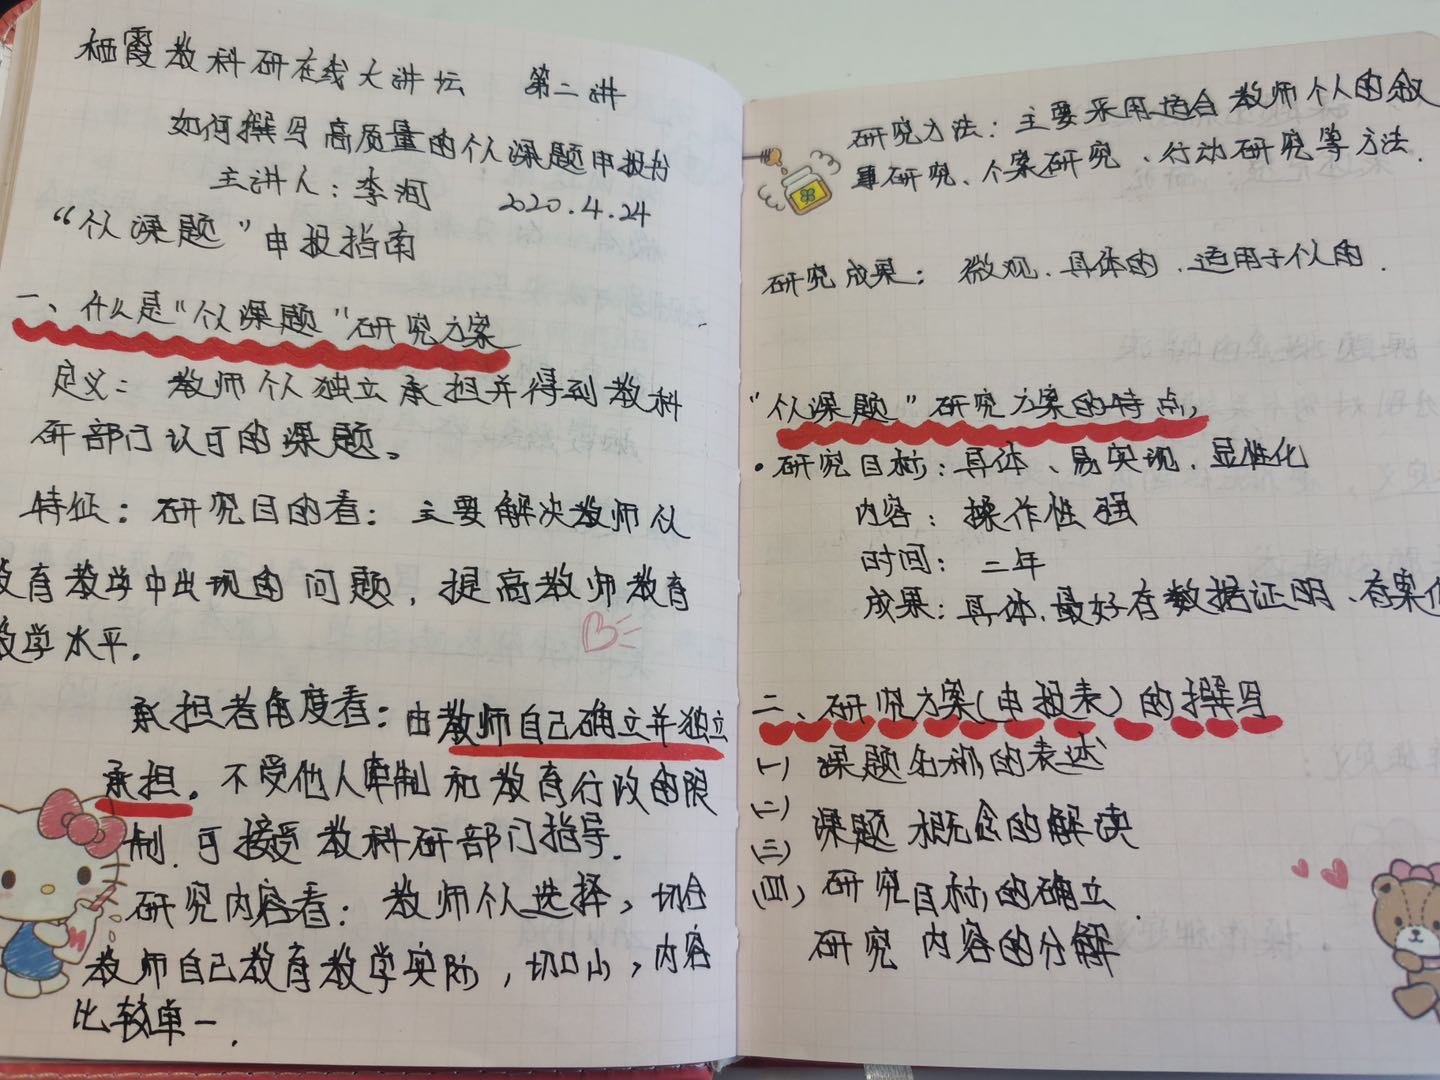 栖霞教科研在线大讲坛 第二讲
如何撰写高质量的个人课题申报书
主讲人：李润 2020.4.24
“个人课题”申报指南
一、什么是“个人课题”研究方案
定义：教师个人独立承担并得到教科
研部门认可的课题。
特征：研究目的看：主要解决教师个人
教育教学中出现的问题，提高教师教育
教学水平.
承担者角度看：由教师自己确立并独立
承担。不受他人牵制和教育行政的限
制.可接受教科研部门指导.
研究内容看：教师个人选择，切合
教师自己教育教学实际，切口小，内容
比较单一.
研究方法：主要采用适合教师个人的叙
事研究、个案研究、行动研究等方法.
研究成果：微观、具体的、适用于个人的.
“个人课题”研究方案的特点,
·研究目标：具体、易实现、显性化
内容：操作性强
时间：二年
成果：具体、最好有数据证明、有案例
二、研究方案(申报表)的撰写
(一) 课题名称的表述
(二) 课题概念的解读
(三) 研究目标的确立.
(四) 研究内容的分解